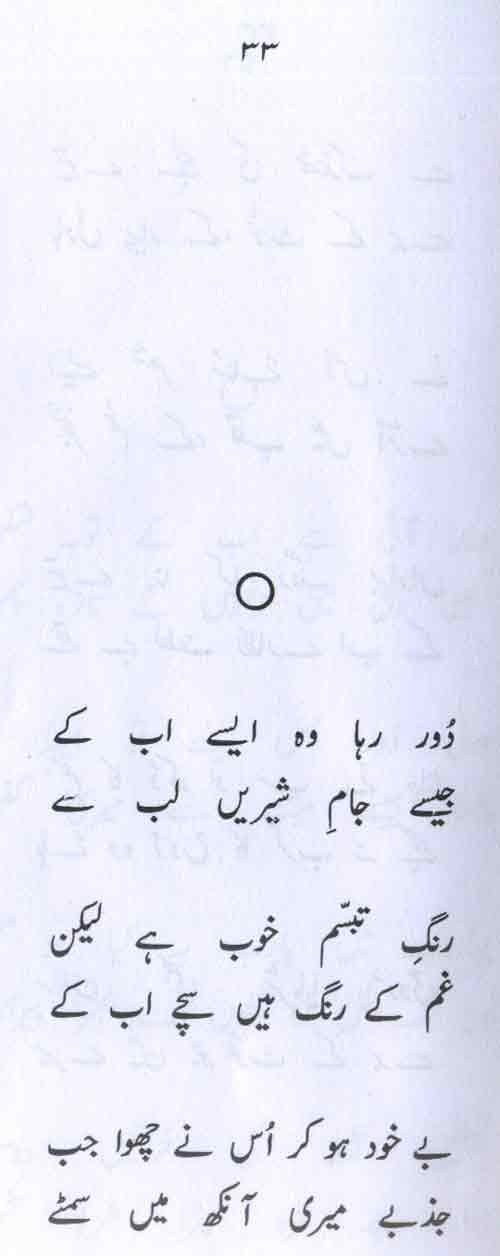 ۳۳
دُور رہا وہ ایسے اب کے
جیسے جامِ شیریں لب سے
رنگِ تبسّم خوب ہے لیکن
غم کے رنگ ہیں سچے اب کے
بے خود ہو کر اُس نے چھوا جب
جذبے میری آنکھ میں سمٹے